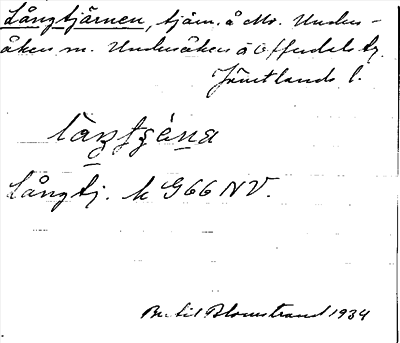 Långtjärnen, tjärn. å Mo. Unders-
åkers sn. Undersåkers o Offerdals tg.
Jämtlands l.
laŋtʃéṇa
Långtj. k G66 NV.
Bertil Blomstrand 1934